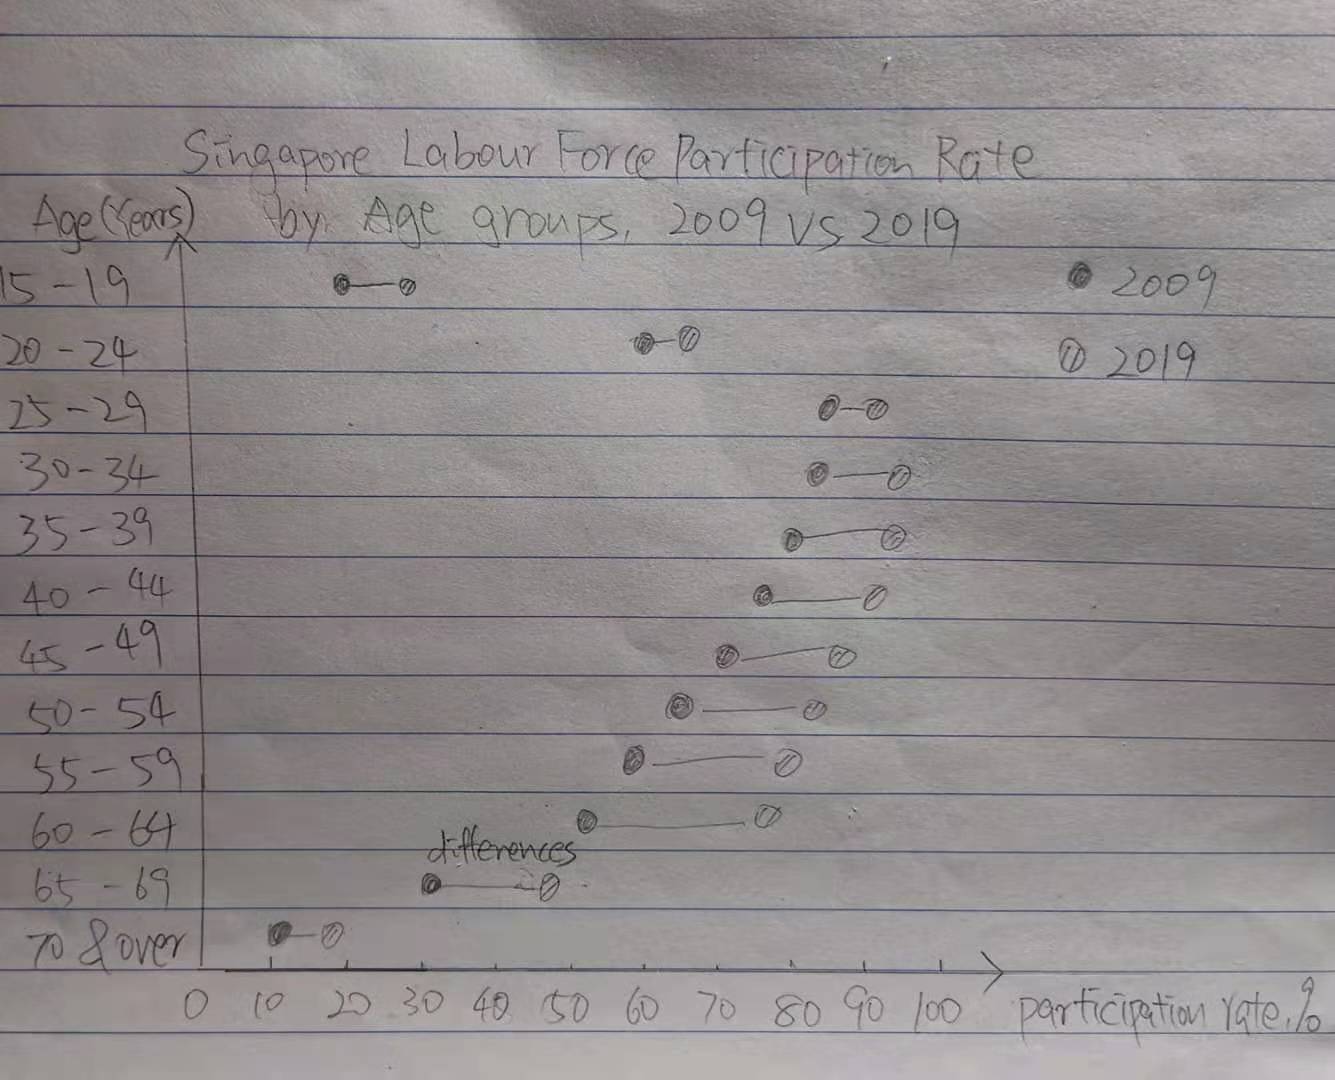 Singapore Labour Force Participation Rate
by Age groups, 2009 VS 2019
Age(Years)
15-19
2009
20-24
2019
25-29
30-34
35-39
40-44
45-49
50-54
55-59
60-64
differences
65-69
70 & over
0 10 20 30 40 50 60 70 80 90 100 participation rate,%